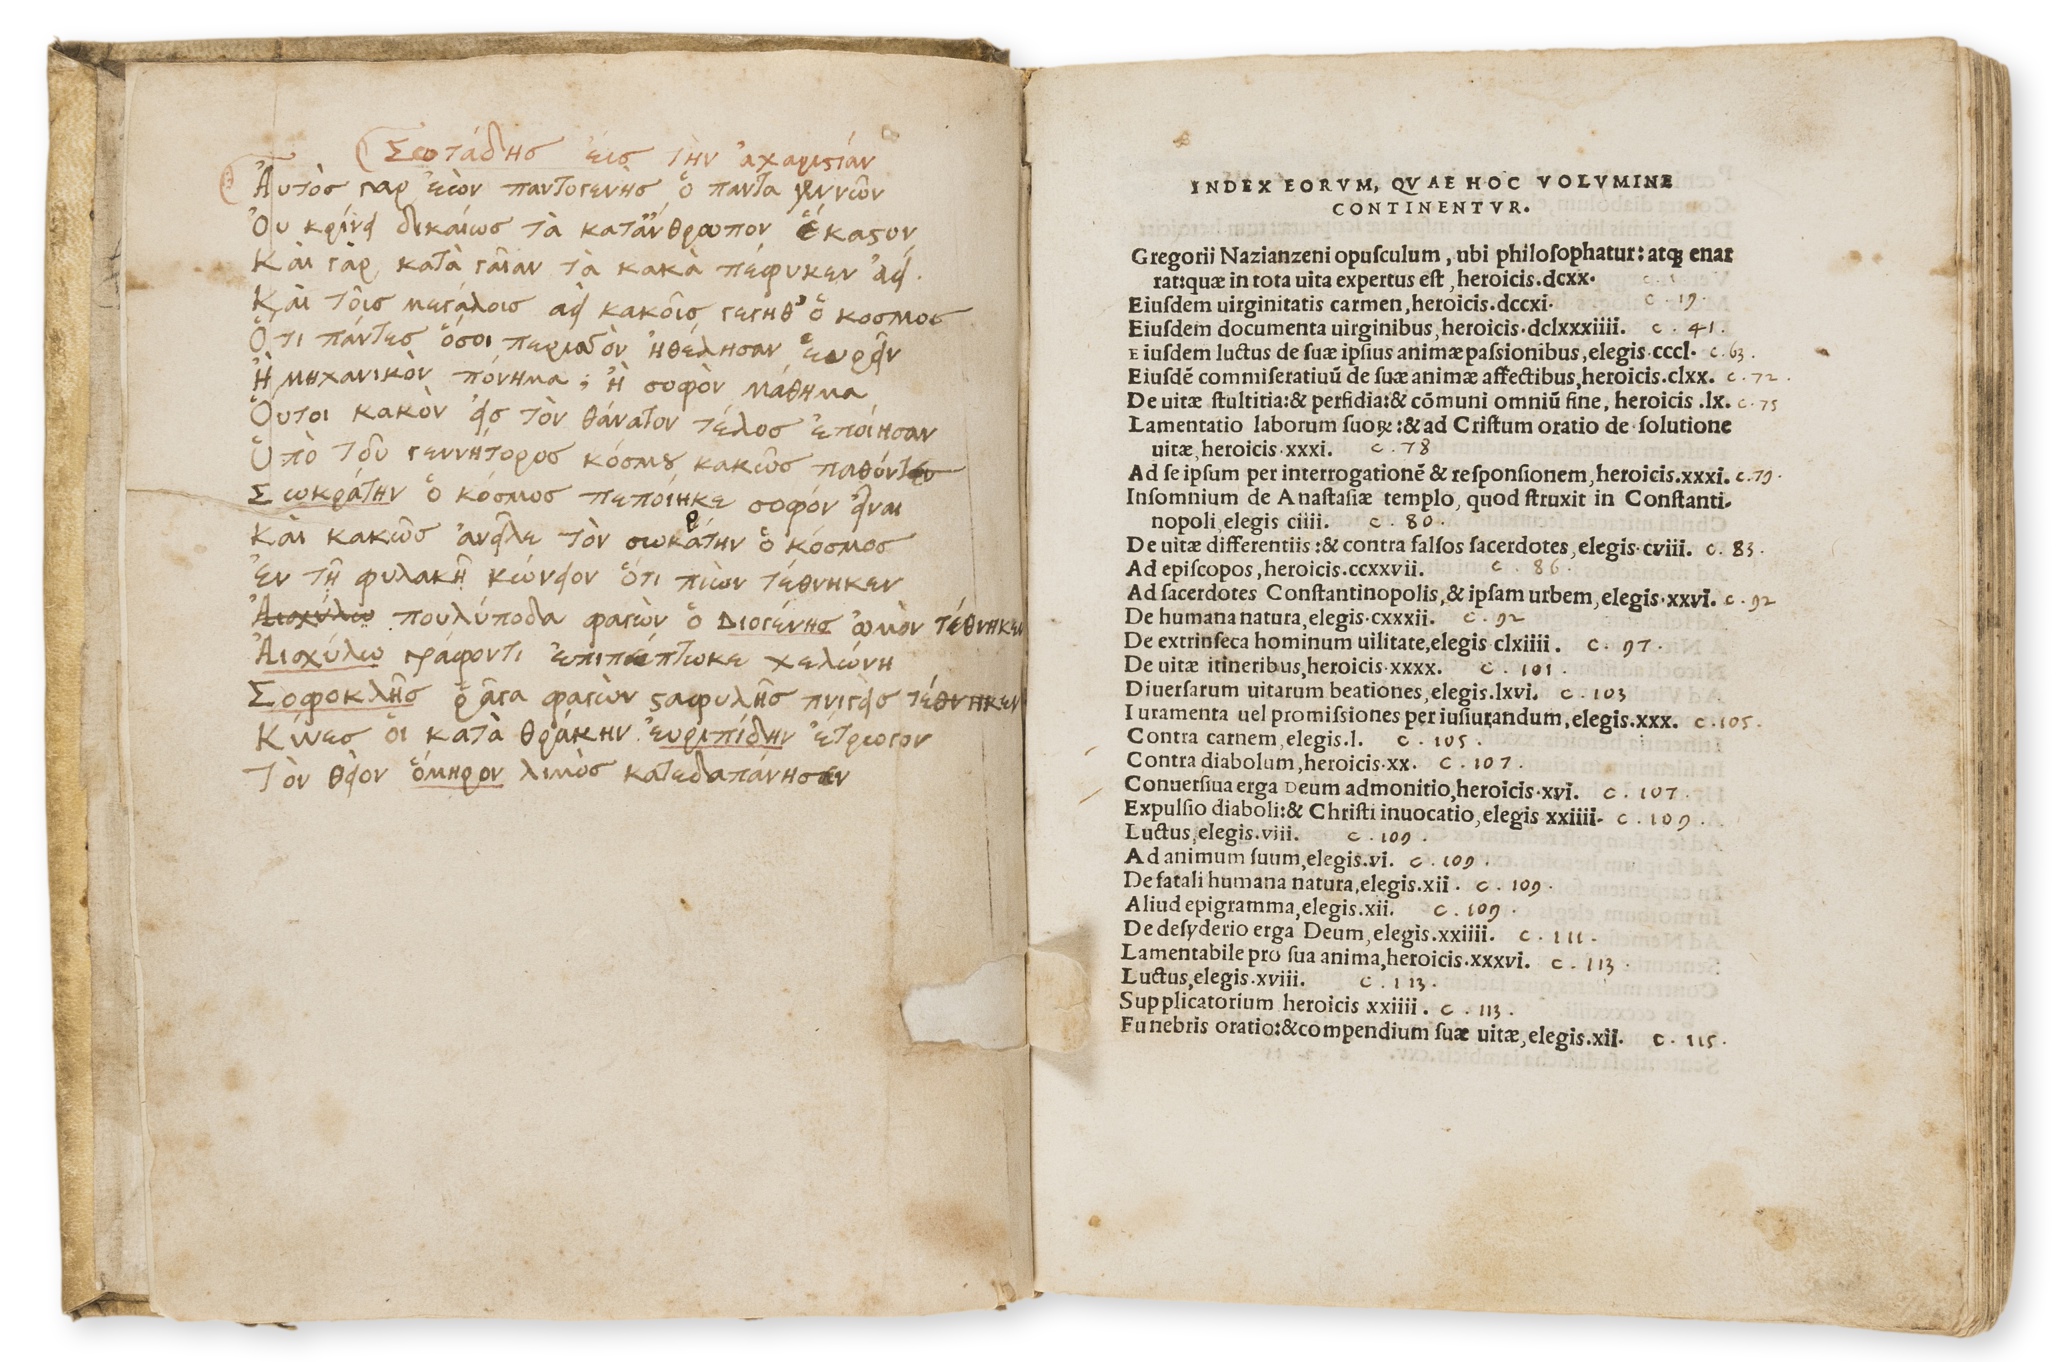 Σωτάδης εις την αχαριστίαν
Ἀυτὸς γαρ ἐὼν παντογενὴς ὁ παντα γεννῶν
Ὀυ κρίνει δικαίως τὰ κατ' ἄνθρωπον ἕκαστον
Κὰι γὰρ κατὰ γαῖαν τὰ κακὰ πέφυκεν ἀεί.
Κὰι τοῖς μεγάλοις ἀεὶ κακοῖς γεγηθ' ὁ κοσμος
Ὅτι πάντες ὅσοι περισσὸν ἠθέλησαν ἑυρεῖν
Ἢ μηχανικὸν πόνημα ; ἢ σοφὸν μάθημα
Οὗτοι κακὸν εἰς τὸν θάνατον τέλος ἐποίησαν
Ὑπὸ τοῦ γεννήτορος κόσμου κακῶς παθόντες
Σωκράτην ὁ κόσμος πεποίηκε σοφόν εἶναι
Κὰι κακῶς ἀνεῖλε τὸν σωκράτην ὁ κόσμος
Ἐν τῇ φυλακῇ κώνειον ὅτι πιὼν τέθνηκεν
πουλύποδα φαγὼν ὁ Διογένης ὠμὸν τέθνηκεν
Ἀισχύλω γράφοντι ἐπιπέπτωκε χελώνη
Σοφοκλῆς ῥᾶγα φαγὼν σταφυλῆς πνιγεὶς τέθνηκεν
Κύνες ὁι κατὰ θράκην ἐυριπίδην ἔτρωγον
Τὸν θεῖον ὅμηρον λιμὸς κατεδαπάνησεν
INDEX EORVM, QVAE HOC VOLVMINE
CONTINENTVR.
Gregorii Nazianzeni opusculum, ubi philosophatur: atq; enar
rat:quæ in tota uita expertus est, heroicis.dcxx.
Eiusdem uirginitatis carmen, heroicis.dccxi. c . 19.
Eiusdem documenta uirginibus, heroicis.dclxxxiiii. c . 41.
Eiusdem luctus de suæ ipsius animæ passionibus, elegis.cccl. c. 63.
Eiusdē commiseratiuū de suæ animæ affectibus, heroicis.clxx. c. 72.
De uitæ stultitia:& perfidia:& cōmuni omniū fine, heroicis.lx. c. 75
Lamentatio laborum suoꝝ:& ad Cristum oratio de solutione
uitæ, heroicis.xxxi. c . 78
Ad se ipsum per interrogationē & responsionem, heroicis.xxxi. c. 79.
Insomnium de Anastasiæ templo, quod struxit in Constanti-
nopoli, elegis ciiii. c . 80.
De uitæ differentiis:& contra falsos sacerdotes, elegis.cviii. c . 83.
Ad episcopos, heroicis.ccxxvii. c . 86.
Ad sacerdotes Constantinopolis, & ipsam urbem, elegis.xxvi. c . 92
De humana natura, elegis.cxxxii. c . 92
De extrinseca hominum uilitate, elegis clxiiii. c . 97.
De uitæ itineribus, heroicis.xxxx. c . 101.
Diuersarum uitarum beationes, elegis.lxvi. c . 103
Iuramenta uel promissiones per iusiurandum, elegis.xxx. c . 105.
Contra carnem, elegis.l. c . 105.
Contra diabolum, heroicis.xx. c . 107.
Conuersiua erga Deum admonitio, heroicis.xvi. c . 107.
Expulsio diaboli:& Christi inuocatio, elegis xxiiii. c . 109.
Luctus, elegis.viii. c . 109.
Ad animum suum, elegis.vi. c . 109.
De fatali humana natura, elegis.xii. c . 109.
Aliud epigramma, elegis.xii. c . 109.
De desyderio erga Deum, elegis.xxiiii. c . 111.
Lamentabile pro sua anima, heroicis.xxxvi. c . 113.
Luctus, elegis.xviii. c . 113.
Supplicatorium heroicis xxiiii. c . 113.
Funebris oratio:& compendium suæ uitæ, elegis.xii. c . 115.